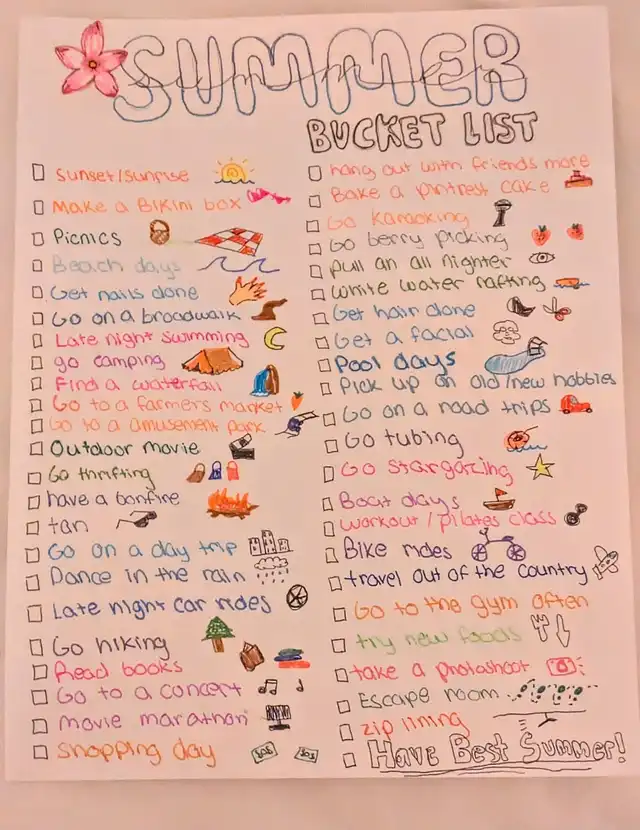 SUMMER
BUCKET LIST
Sunset/sunrise
Make a Bikini box
Picnics
Beach days
Get nails done
Go on a broadwalk
Late night swimming
go camping
Find a waterfall
Go to a farmers market
Go to a amusement park
Outdoor movie
Go thrifting
have a bonfire
tan
Go on a day trip
Dance in the rain
Late night car rides
Go hiking
Read books
Go to a concert
movie marathon
shopping day
hang out with friends more
Bake a pintrest cake
Go karaoking
Go berry picking
pull an all nighter
White water rafting
Get hair done
Get a facial
Pool days
Pick up on old/new hobbies
Go on a road trips
Go tubing
Go stargazing
Boat days
workout/pilates class
Bike rides
travel out of the country
Go to the gym often
try new foods
take a photoshoot
Escape room
zip lining
Have Best Summer!